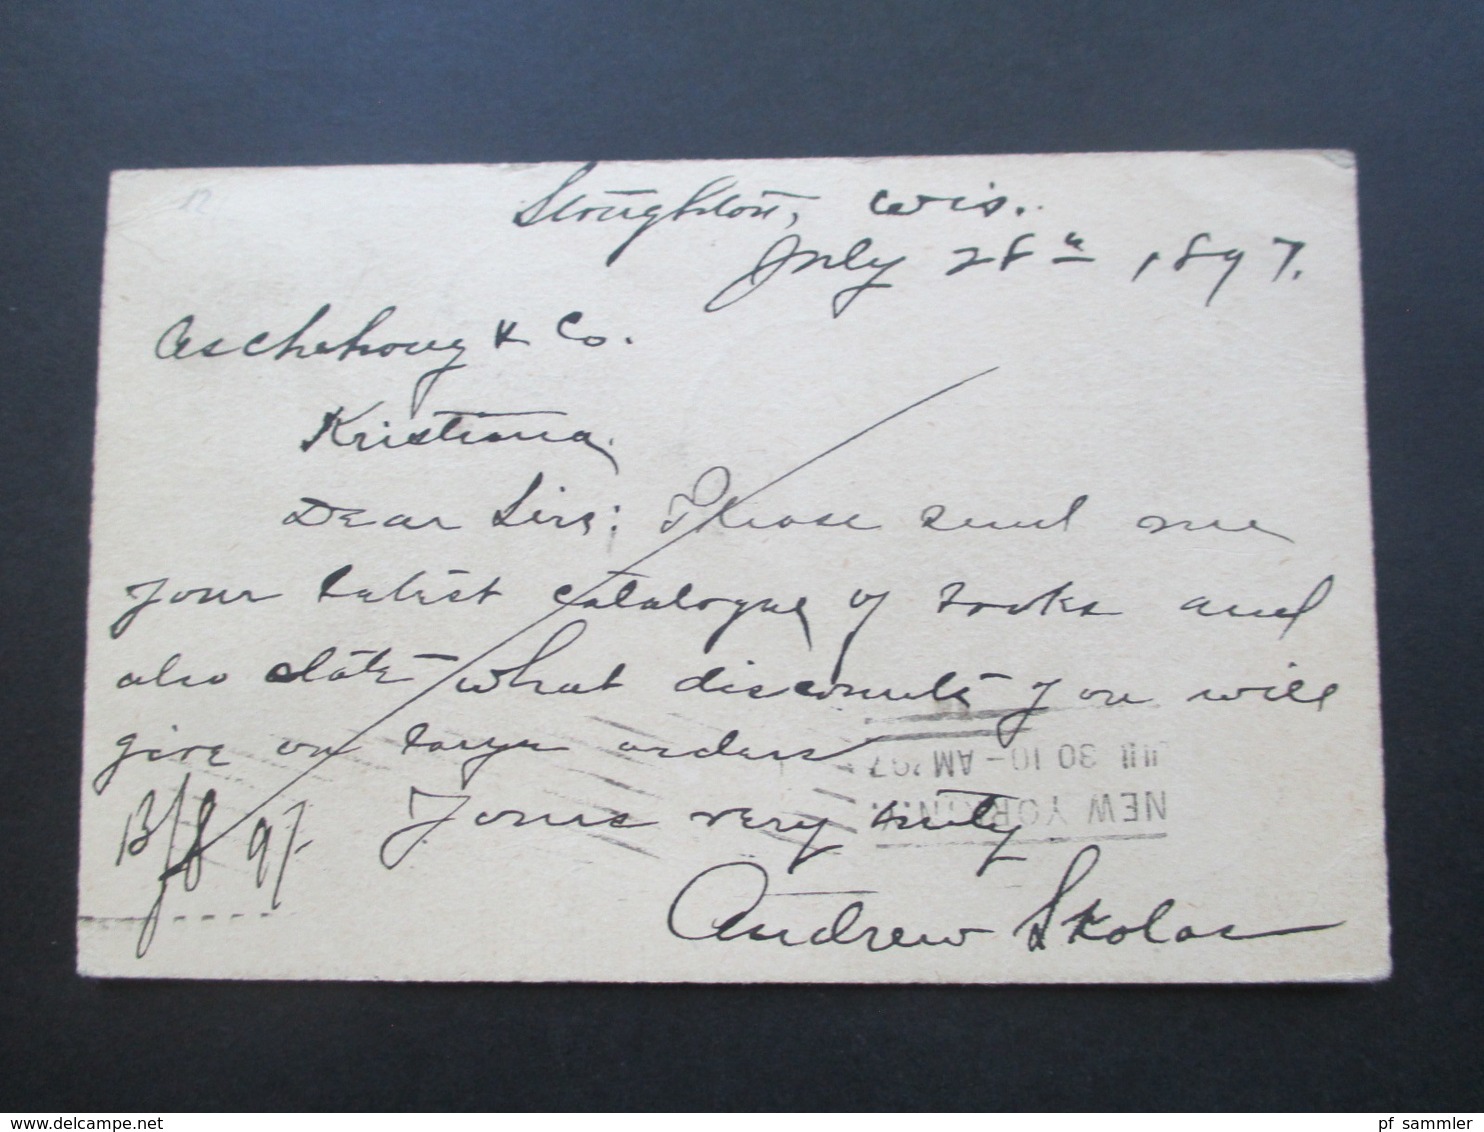 Stoughton, Wis.
July 28th 1897.
Aschehoug & Co.
Kristiana.
Dear Sirs: Please send me
your latest catalogue of books and
also state what discounts you will
give on large orders
Yours very truly
Andrew Skolas
13/8 97.
NEW YORK, N.Y.
JUL 30 10-AM '97
12
pf sammler